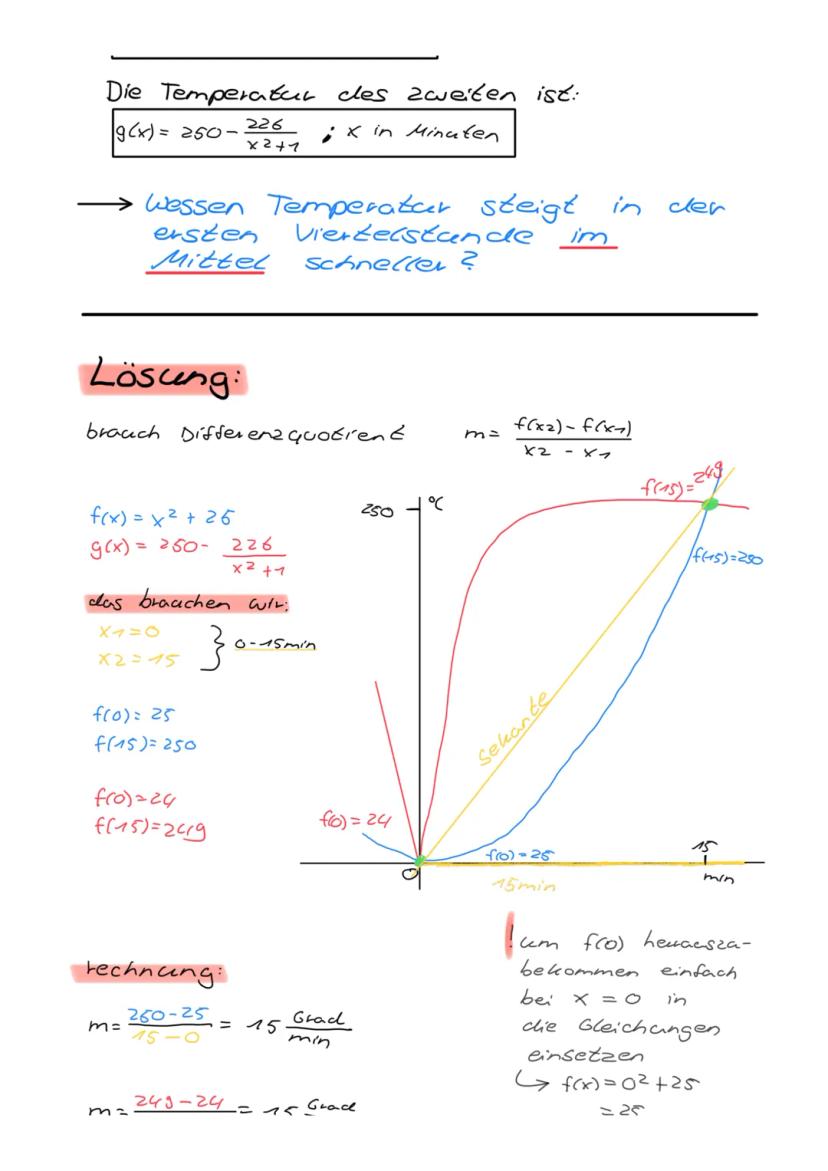 Die Temperatur des zweiten ist:
g(x) = 250 - 226 / x² + 1 ; x in Minuten
→ Wessen Temperatur steigt in der
ersten Viertelstunde im
Mittel schneller?
Lösung:
brauch Differenzquotient m = f(x2) - f(x1) / x2 - x1
f(x) = x² + 25
g(x) = 250 - 226 / x² + 1
das brauchen wir:
x1 = 0
x2 = 15
} 0-15min
f(0) = 25
f(15) = 250
f(0) = 24
f(15) = 249
250 °C
f(15) = 249
f(15) = 250
sekante
f(0) = 24
f(0) = 25
0
15min
15
min
rechnung:
m = 250 - 25 / 15 - 0 = 15 Grad / min
m = 249 - 24 = 15 Grad
! um f(0) herauszu-
bekommen einfach
bei x = 0 in
die Gleichungen
einsetzen
↳ f(x) = 0² + 25
= 25